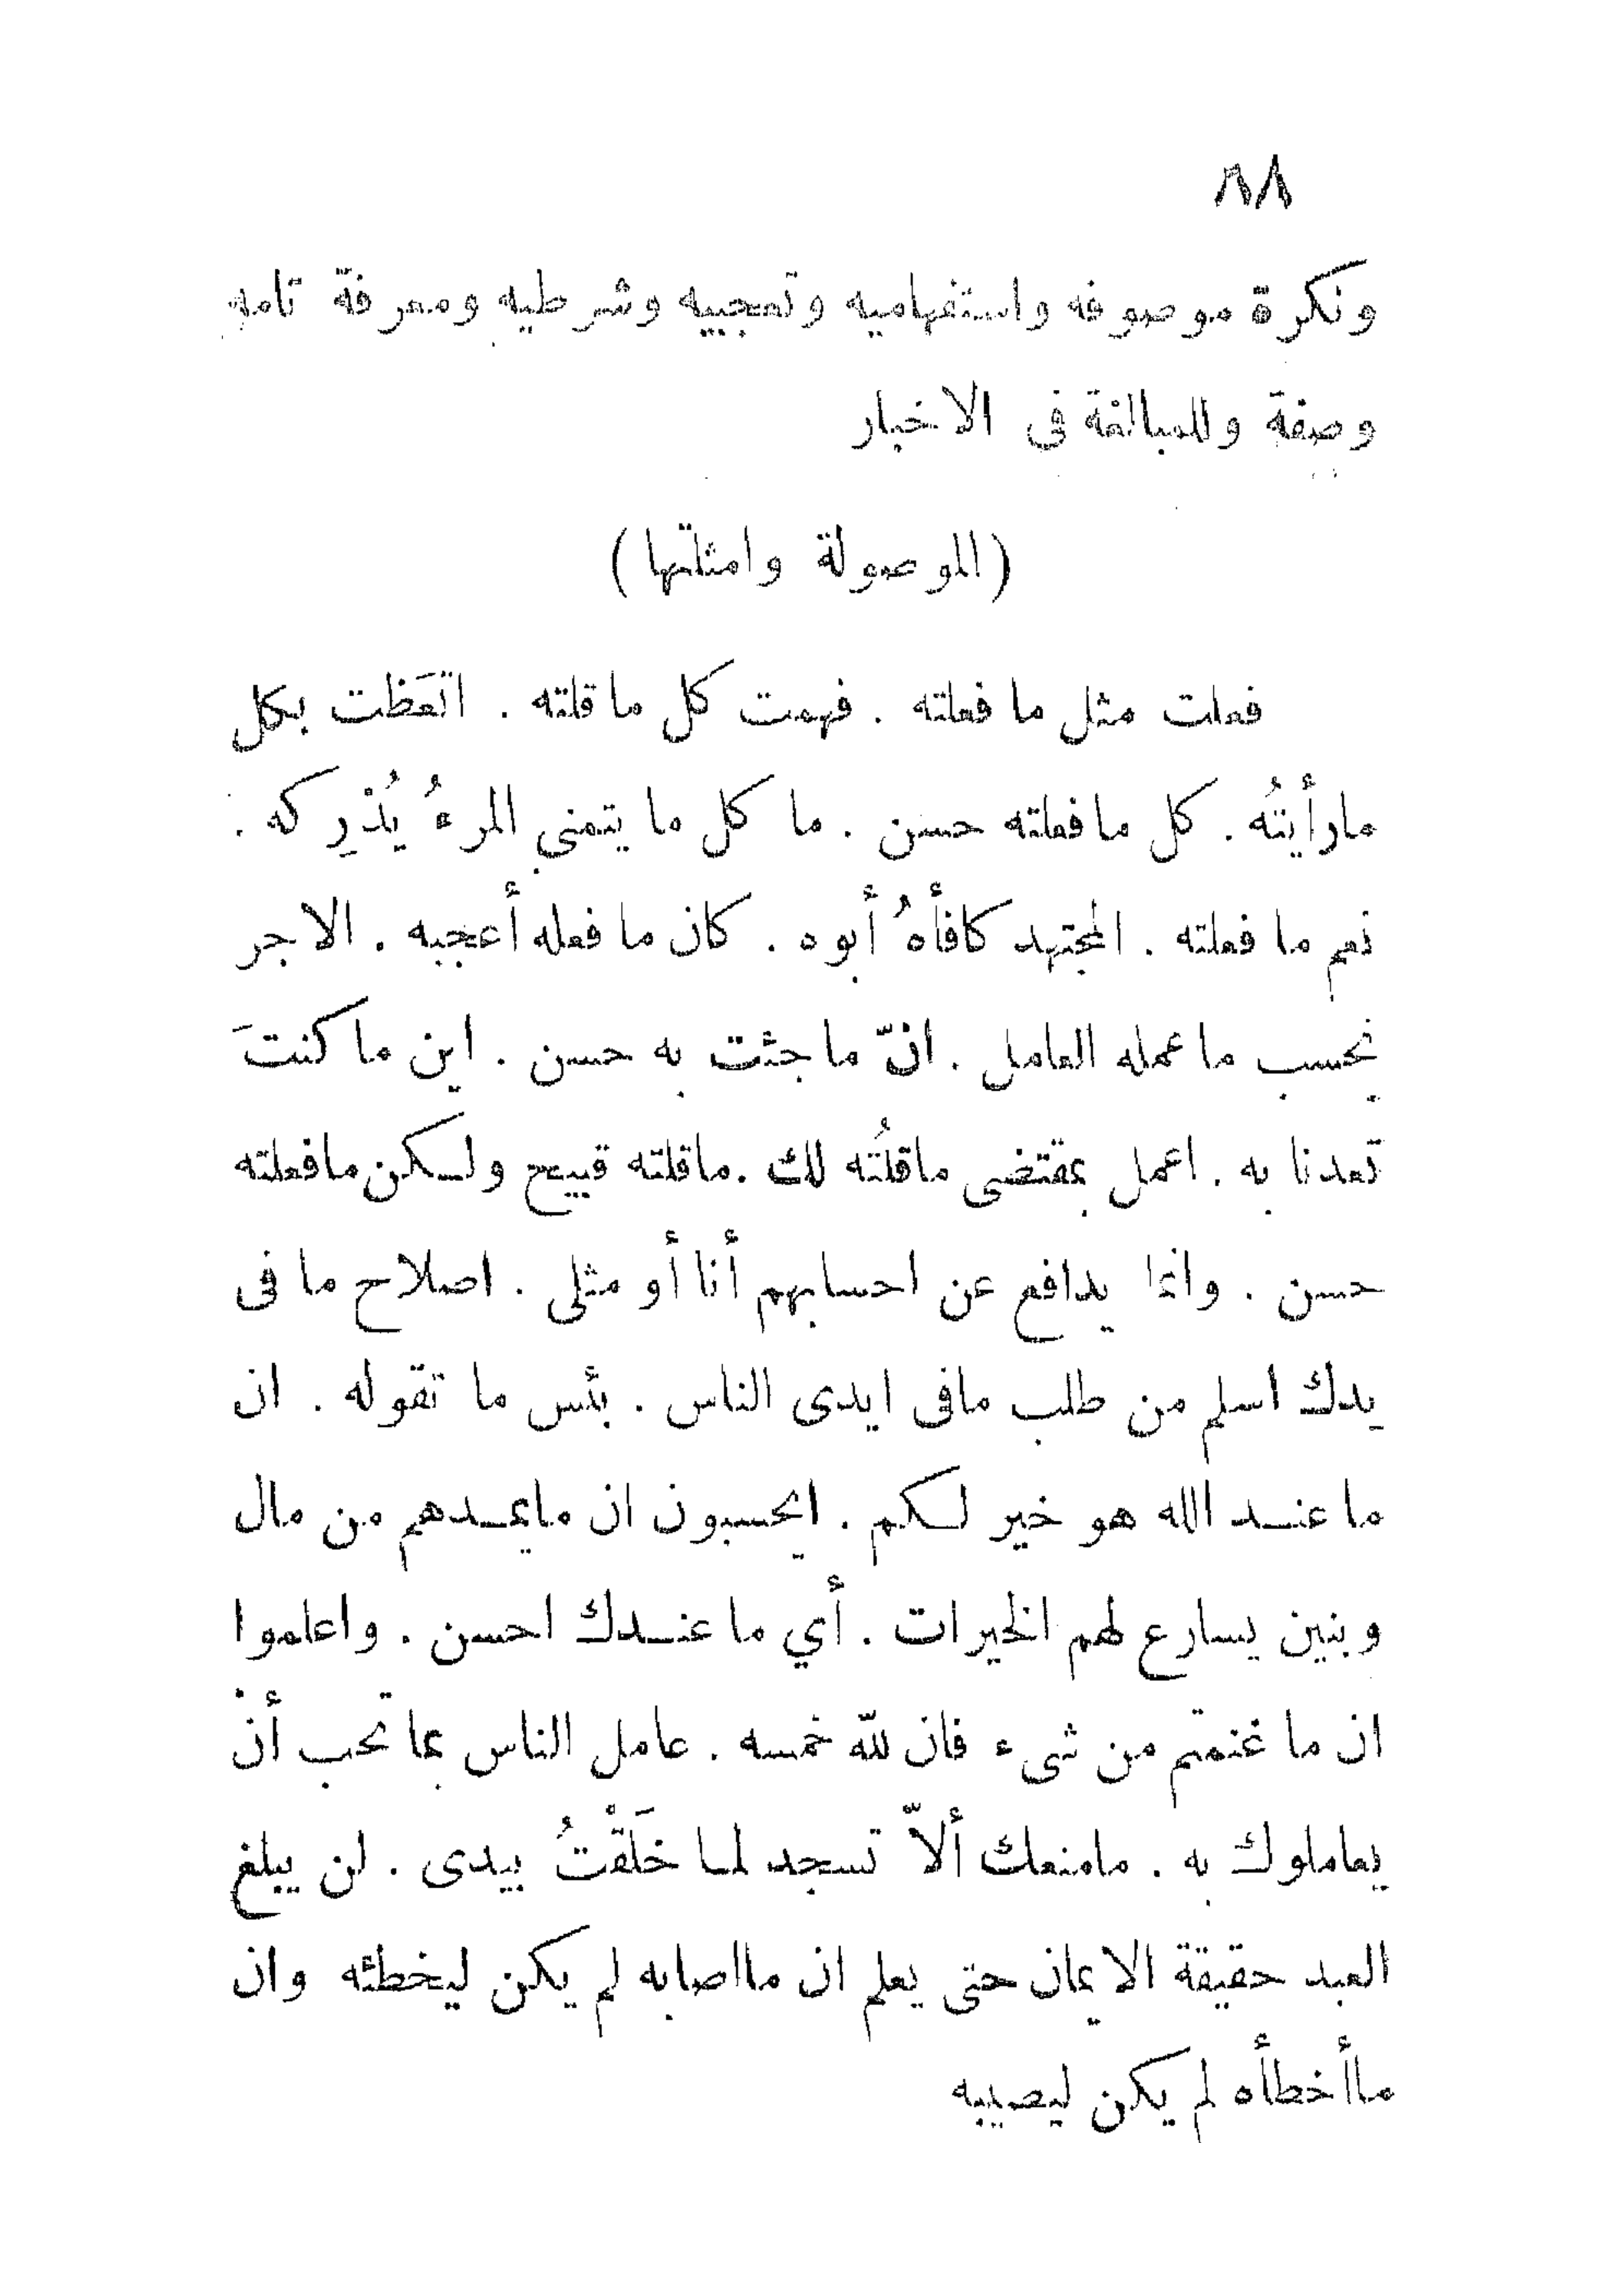 ٨٨
ونكرة موصوفه واستفهاميه وتعجبيه وشرطيه ومعرفة تامه
وصفة وللمبالغة فى الاخبار
(الموصولة وامثلتها)
فعلت مثل ما فعلته . فهمت كل ما قلته . اتعَظت بكل
مارأيتُه . كل ما فعلته حسن . ما كل ما يتمني المرءُ يُدْرِكه .
نعم ما فعلته . المجتهد كافأهُ أبوه . كان ما فعله أعجبه . الاجر
بحسب ما عمله العامل . انّ ما جئت به حسن . اين ما كنتَ
تعدنا به . اعمل بمقتضى ماقلتُه لك . ماقلته قبيح ولكن مافعلته
حسن . وانما يدافع عن احسابهم أنا أو مثلى . اصلاح ما فى
يدك اسلم من طلب مافى ايدى الناس . بئس ما تقوله . ان
ما عند الله هو خير لكم . ايحسبون ان مايمدهم من مال
وبنين يسارع لهم الخيرات . أي ما عندك احسن . واعلموا
ان ما غنمتم من شىء فان لله خمسه . عامل الناس بما تحب أنْ
يعاملوك به . مامنعك ألاّ تسجد لما خَلَقْتُ بيدى . لن يبلغ
العبد حقيقة الايمان حتى يعلم ان مااصابه لم يكن ليخطئه وان
ماأخطأه لم يكن ليصيبه